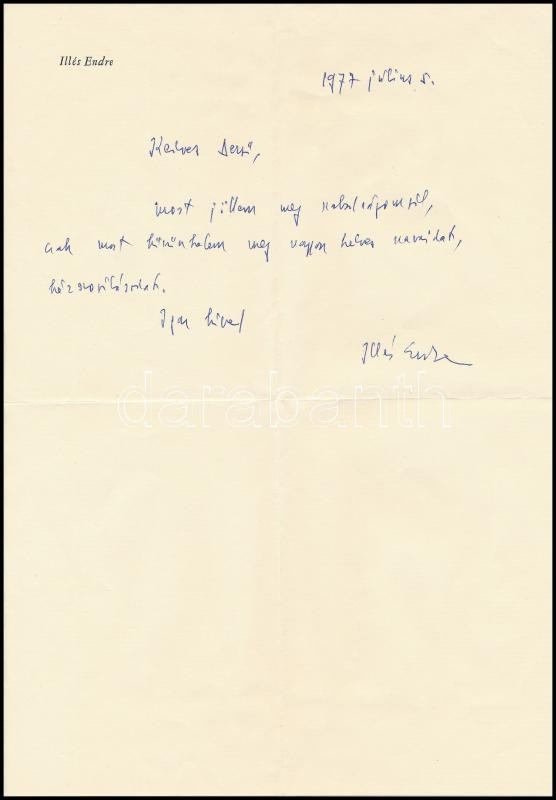 Illés Endre
1977 július 5.
Kedves Dezső,
most jöttem meg szabadságomról,
csak most köszönhetem meg nagyon kedves szavaidat,
kézszorításodat.
Igaz híved
Illés Endre
darabanth